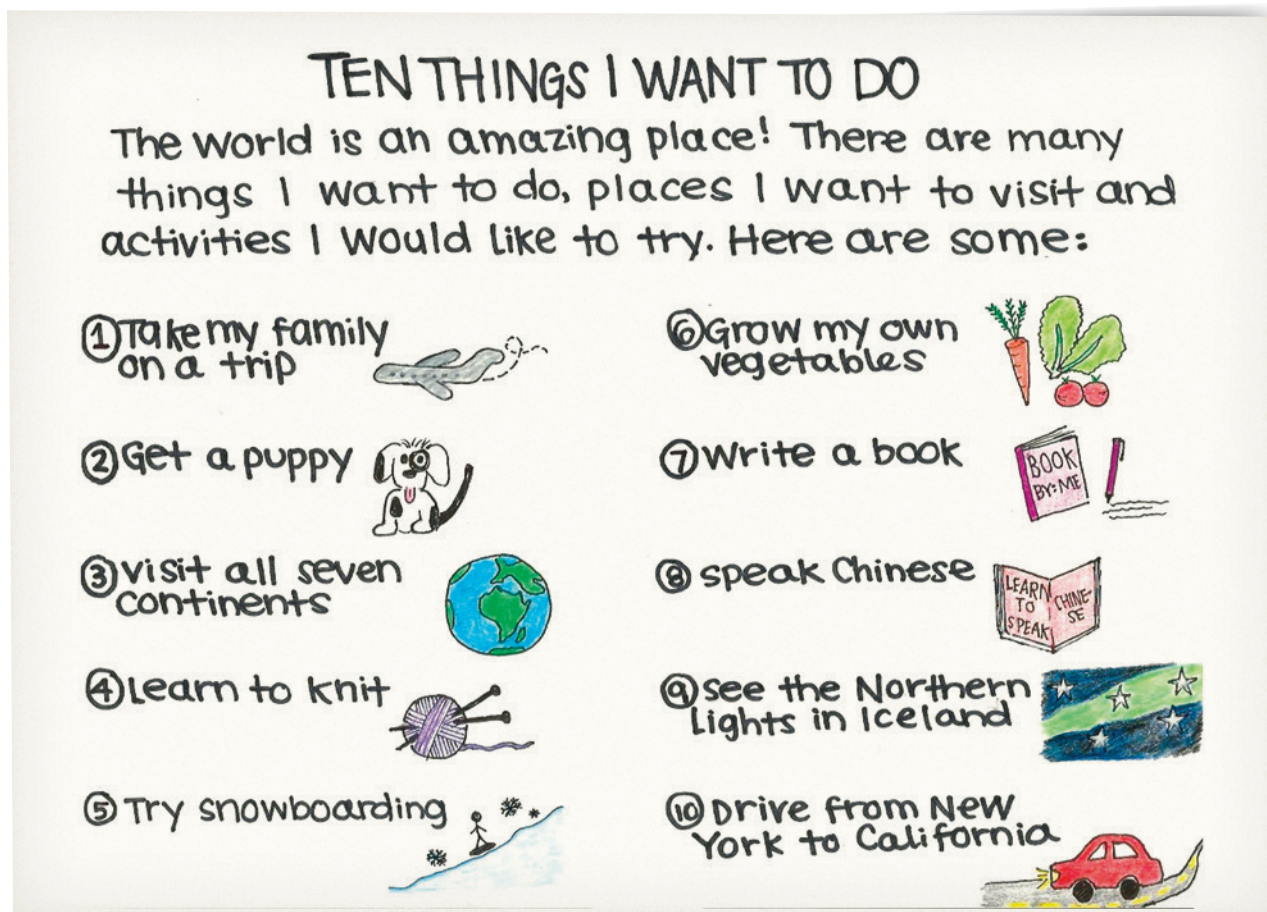 TEN THINGS I WANT TO DO
The world is an amazing place! There are many
things I want to do, places I want to visit and
activities I would like to try. Here are some:
① Take my family
on a trip
② Get a puppy
③ visit all seven
continents
④ Learn to knit
⑤ Try snowboarding
⑥ Grow my own
vegetables
⑦ Write a book
BOOK
BY: ME
⑧ speak Chinese
LEARN
TO
SPEAK
CHINE-
SE
⑨ see the Northern
Lights in Iceland
⑩ Drive from New
York to California